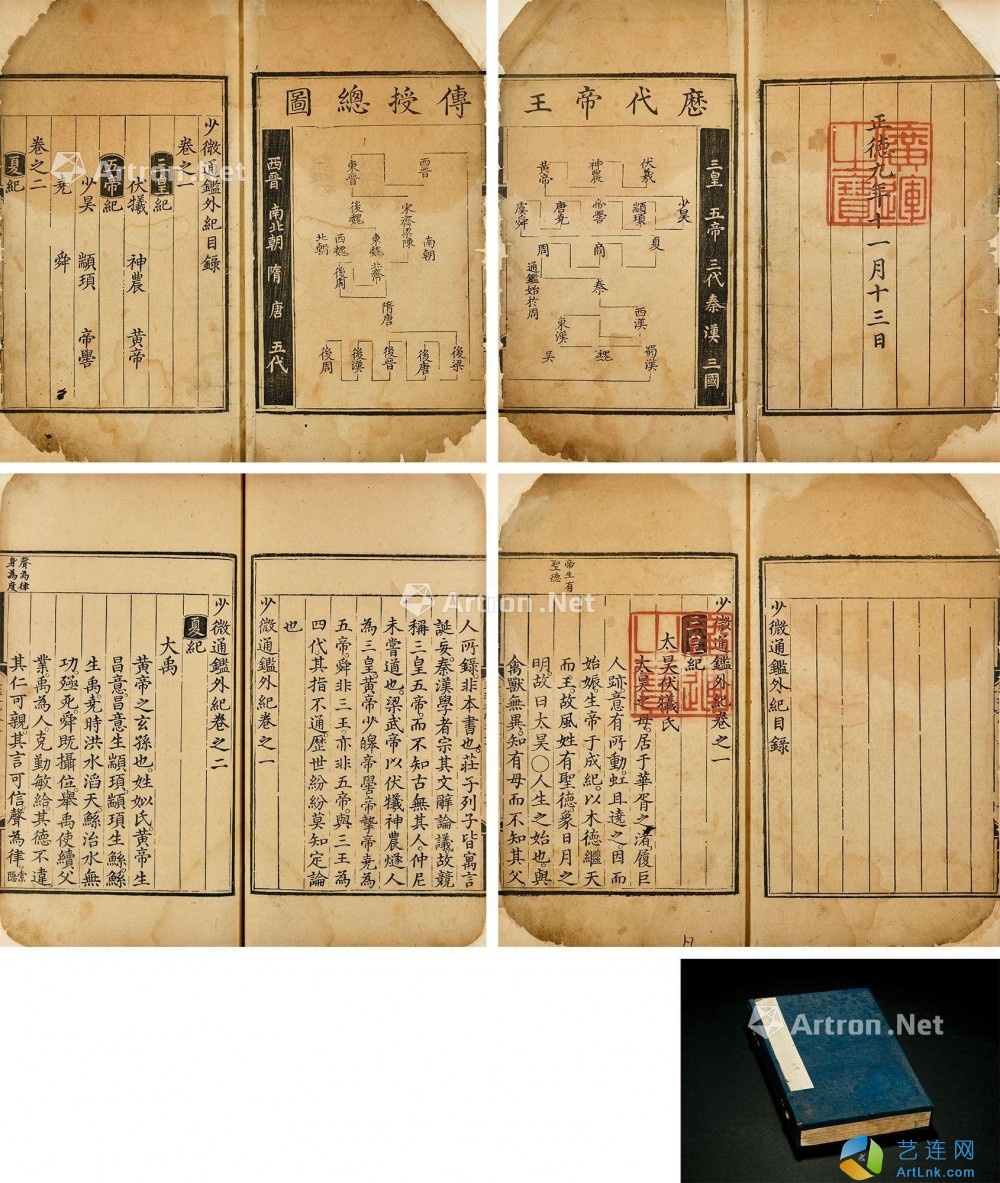 正德元年十一月十三日
廣運之寶
歷代帝王
三皇 五帝 三代 秦 漢 三國
伏羲
神農
黃帝
少昊
顓頊
帝嚳
唐堯
虞舜
夏
商
周
通鑑始於周
秦
西漢
東漢
蜀漢
魏
吳
傳授總圖
西晉
東晉
宋齊梁陳
後魏
南朝
東魏
北齊
西魏
後周
北朝
隋唐
後梁
後唐
後晉
後漢
後周
西晉 南北朝 隋 唐 五代
少微通鑑外紀目錄
卷之一
三皇紀
伏犧 神農 黃帝
五帝紀
少昊 顓頊 帝嚳
堯 舜
卷之二
夏紀
少微通鑑外紀目錄
少微通鑑外紀卷之一
三皇紀
太昊伏犧氏
帝生有
聖德
太昊之母居于華胥之渚履巨
人跡意有所動虹且遶之因而
始娠生帝于成紀以木德繼天
而王故風姓有聖德象日月之
明故曰太昊○人生之始也與
禽獸無異知有母而不知其父
人所錄非本書也莊子列子皆寓言
誕妄秦漢學者宗其文辭論議故競
稱三皇五帝而不知古無其人仲尼
未嘗道也梁武帝以伏犧神農燧人
為三皇黃帝少皞帝嚳帝摯帝堯為
五帝舜非三王亦非五帝與三王為
四代其指不通歷世紛紛莫知定論
也
少微通鑑外紀卷之一
少微通鑑外紀卷之二
夏紀
大禹
黃帝之玄孫也姓姒氏黃帝生
昌意昌意生顓頊顓頊生鯀鯀
生禹堯時洪水滔天鯀治水無
功殛死舜既攝位舉禹使續父
業禹為人克勤敏給其德不違
其仁可親其言可信聲為律索隱
聲為律
身為度
Artron.Net
Artron.Net
Artron.Net
Artron.Net
艺连网
ArtLnk.com